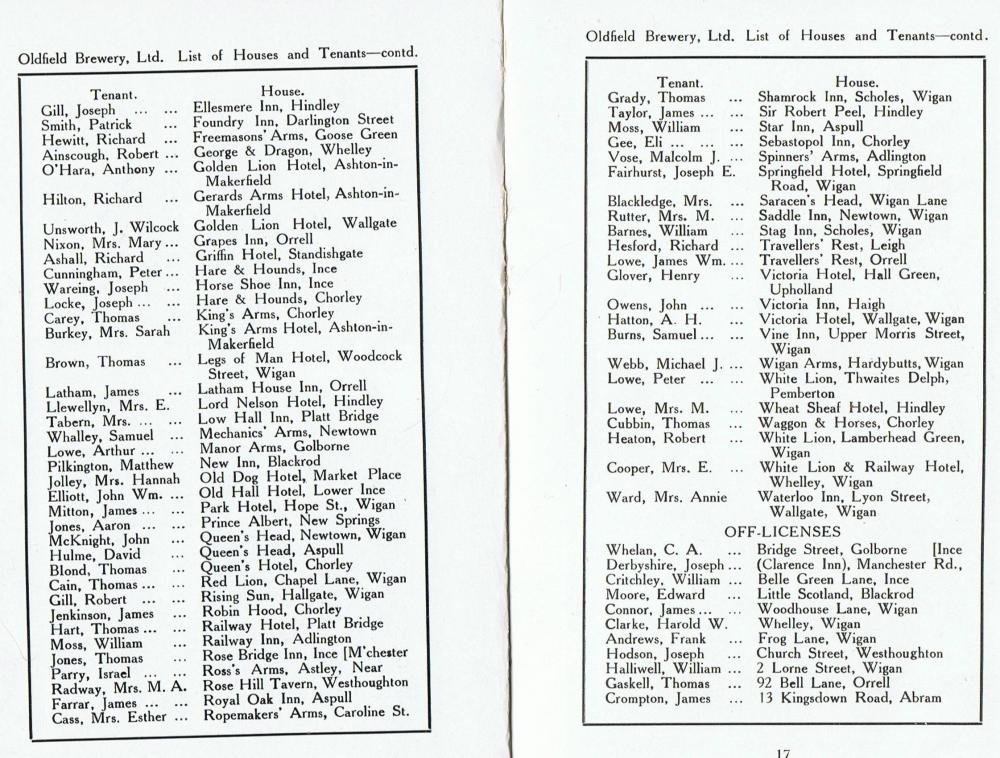 Oldfield Brewery, Ltd. List of Houses and Tenants—contd.
Tenant. House.
Gill, Joseph ... ... Ellesmere Inn, Hindley
Smith, Patrick ... Foundry Inn, Darlington Street
Hewitt, Richard ... Freemasons' Arms, Goose Green
Ainscough, Robert ... George & Dragon, Whelley
O'Hara, Anthony ... Golden Lion Hotel, Ashton-in-
Makerfield
Hilton, Richard ... Gerards Arms Hotel, Ashton-in-
Makerfield
Unsworth, J. Wilcock Golden Lion Hotel, Wallgate
Nixon, Mrs. Mary ... Grapes Inn, Orrell
Ashall, Richard ... Griffin Hotel, Standishgate
Cunningham, Peter ... Hare & Hounds, Ince
Wareing, Joseph ... Horse Shoe Inn, Ince
Locke, Joseph ... ... Hare & Hounds, Chorley
Carey, Thomas ... King's Arms, Chorley
Burkey, Mrs. Sarah King's Arms Hotel, Ashton-in-
Makerfield
Brown, Thomas ... Legs of Man Hotel, Woodcock
Street, Wigan
Latham, James ... Latham House Inn, Orrell
Llewellyn, Mrs. E. Lord Nelson Hotel, Hindley
Tabern, Mrs. ... ... Low Hall Inn, Platt Bridge
Whalley, Samuel ... Mechanics' Arms, Newtown
Lowe, Arthur ... ... Manor Arms, Golborne
Pilkington, Matthew New Inn, Blackrod
Jolley, Mrs. Hannah Old Dog Hotel, Market Place
Elliott, John Wm. ... Old Hall Hotel, Lower Ince
Mitton, James ... ... Park Hotel, Hope St., Wigan
Jones, Aaron ... ... Prince Albert, New Springs
McKnight, John ... Queen's Head, Newtown, Wigan
Hulme, David ... Queen's Head, Aspull
Blond, Thomas ... Queen's Hotel, Chorley
Cain, Thomas ... ... Red Lion, Chapel Lane, Wigan
Gill, Robert ... ... Rising Sun, Hallgate, Wigan
Jenkinson, James ... Robin Hood, Chorley
Hart, Thomas ... ... Railway Hotel, Platt Bridge
Moss, William ... Railway Inn, Adlington
Jones, Thomas ... Rose Bridge Inn, Ince [M'chester
Parry, Israel ... ... Ross's Arms, Astley, Near
Radway, Mrs. M. A. Rose Hill Tavern, Westhoughton
Farrar, James ... ... Royal Oak Inn, Aspull
Cass, Mrs. Esther ... Ropemakers' Arms, Caroline St.
Oldfield Brewery, Ltd. List of Houses and Tenants—contd.
Tenant. House.
Grady, Thomas ... Shamrock Inn, Scholes, Wigan
Taylor, James ... ... Sir Robert Peel, Hindley
Moss, William ... Star Inn, Aspull
Gee, Eli ... ... ... Sebastopol Inn, Chorley
Vose, Malcolm J. ... Spinners' Arms, Adlington
Fairhurst, Joseph E. Springfield Hotel, Springfield
Road, Wigan
Blackledge, Mrs. ... Saracen's Head, Wigan Lane
Rutter, Mrs. M. ... Saddle Inn, Newtown, Wigan
Barnes, William ... Stag Inn, Scholes, Wigan
Hesford, Richard ... Travellers' Rest, Leigh
Lowe, James Wm. ... Travellers' Rest, Orrell
Glover, Henry ... Victoria Hotel, Hall Green,
Upholland
Owens, John ... ... Victoria Inn, Haigh
Hatton, A. H. ... Victoria Hotel, Wallgate, Wigan
Burns, Samuel ... ... Vine Inn, Upper Morris Street,
Wigan
Webb, Michael J. ... Wigan Arms, Hardybutts, Wigan
Lowe, Peter ... ... White Lion, Thwaites Delph,
Pemberton
Lowe, Mrs. M. ... Wheat Sheaf Hotel, Hindley
Cubbin, Thomas ... Waggon & Horses, Chorley
Heaton, Robert ... White Lion, Lamberhead Green,
Wigan
Cooper, Mrs. E. ... White Lion & Railway Hotel,
Whelley, Wigan
Ward, Mrs. Annie Waterloo Inn, Lyon Street,
Wallgate, Wigan
OFF-LICENSES
Whelan, C. A. ... Bridge Street, Golborne [Ince
Derbyshire, Joseph ... (Clarence Inn), Manchester Rd.,
Critchley, William ... Belle Green Lane, Ince
Moore, Edward ... Little Scotland, Blackrod
Connor, James ... ... Woodhouse Lane, Wigan
Clarke, Harold W. Whelley, Wigan
Andrews, Frank ... Frog Lane, Wigan
Hodson, Joseph ... Church Street, Westhoughton
Halliwell, William ... 2 Lorne Street, Wigan
Gaskell, Thomas ... 92 Bell Lane, Orrell
Crompton, James ... 13 Kingsdown Road, Abram
17